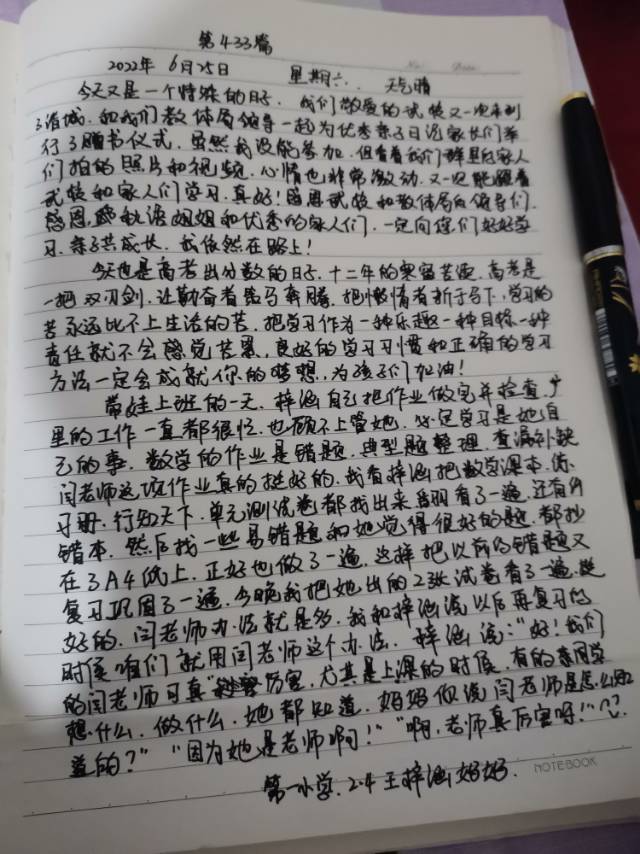 第433篇
2022年 6月25日 星期六. 天气晴
今天又是一个特殊的日子. 我们敬爱的武校又一次来到
了诸城. 和我们教体局领导一起为优秀亲子日记家长们举
行了赠书仪式. 虽然我没能参加. 但看着我们群里家人
们拍的照片和视频. 心情也非常激动. 又一次能跟着
武校和家人们学习. 真好! 感恩武校和教体局的领导们.
感恩 秋语姐姐和优秀的家人们. 一定向您们好好学
习. 亲子共成长. 我依然在路上!
今天也是高考出分数的日子. 十二年的寒窗苦读. 高考是
一把双刃剑. 让勤奋者策马奔腾. 把懒惰者折于马下. 学习的
苦永远比不上生活的苦. 把学习作为一种乐趣一种目标一种
责任就不会感觉苦累. 良好的学习习惯和正确的学习
方法一定会成就你的梦想. 为孩子们加油!
带娃上班的一天. 梓涵自己把作业做完并检查. 厂
里的工作一直都很忙. 也顾不上管她. 学习是她自
己的事. 数学的作业是错题. 典型题整理. 查漏补缺
闫老师这项作业真的挺好的. 我看梓涵把数学课本. 练
习册. 行知天下. 单元测试卷都找出来 翻看了一遍. 还有
错本. 然后找一些易错题和她觉得很好的题. 都抄
在了A4纸上. 正好也做了一遍. 这样把以前的错题又
复习巩固了一遍. 今晚我把她出的2张试卷看了一遍. 挺
好的. 闫老师办法就是多. 我和梓涵说以后再复习的
时候咱们就用闫老师这个办法. 梓涵说:"好! 我们
的闫老师可真 厉害. 尤其是上课的时候. 有的 同学
想什么. 做什么. 她都知道. 妈妈你说闫老师是怎么知
道的?" "因为她是老师啊!" "啊, 老师真厉害呀!"
第一小学. 2.4 王梓涵妈妈.
NOTEBOOK